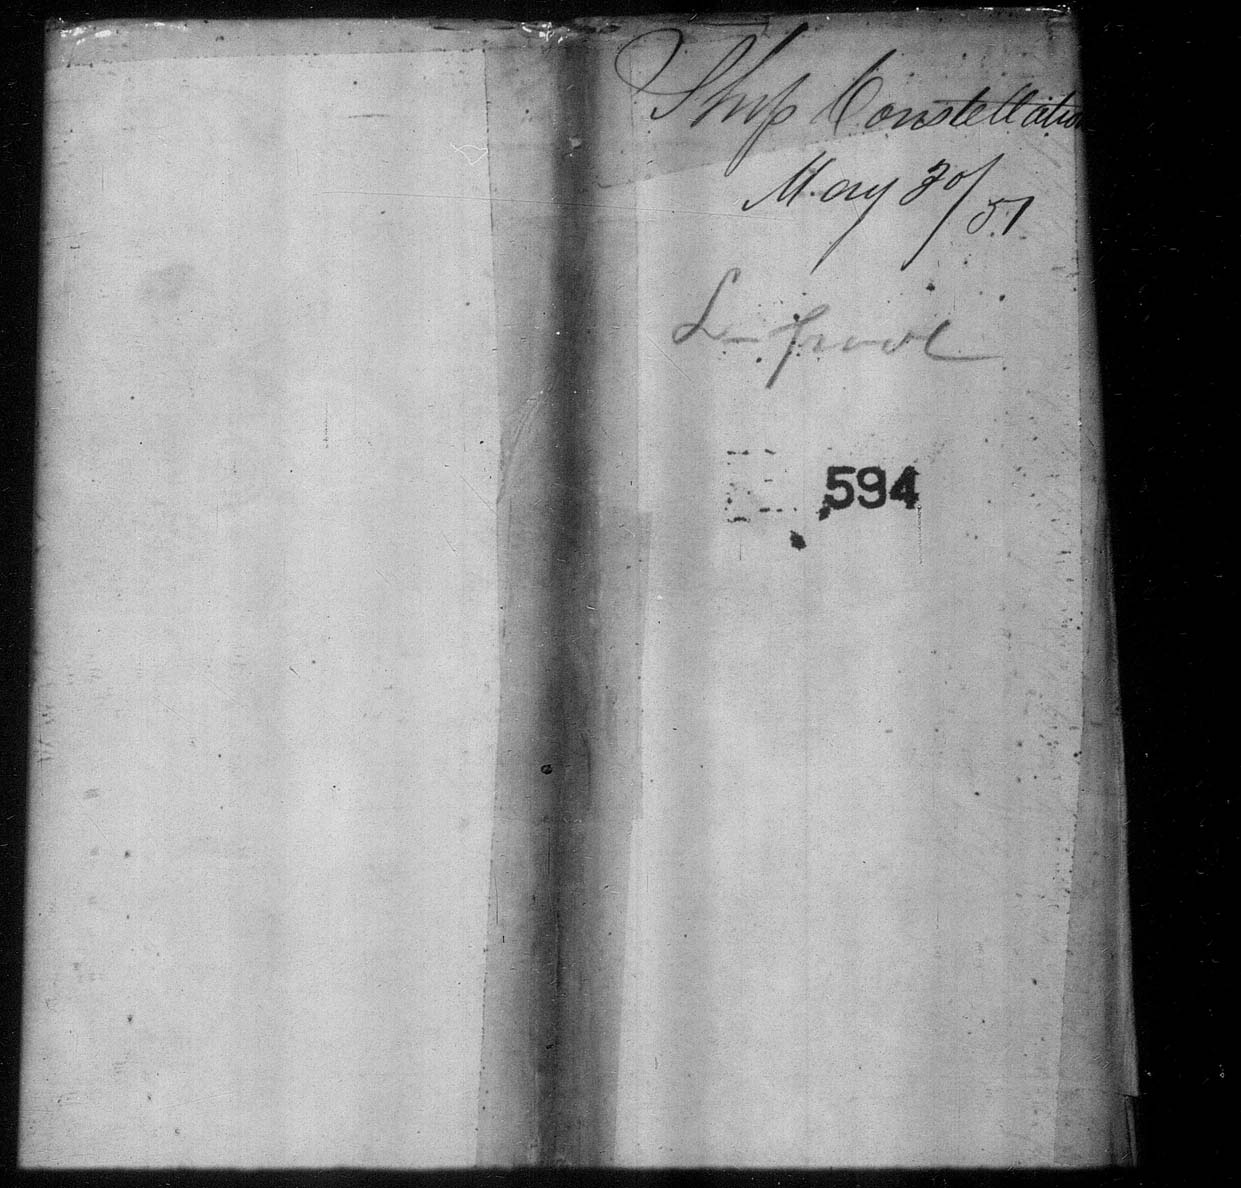 Ship Constellation
May 30/51
L-pool
594